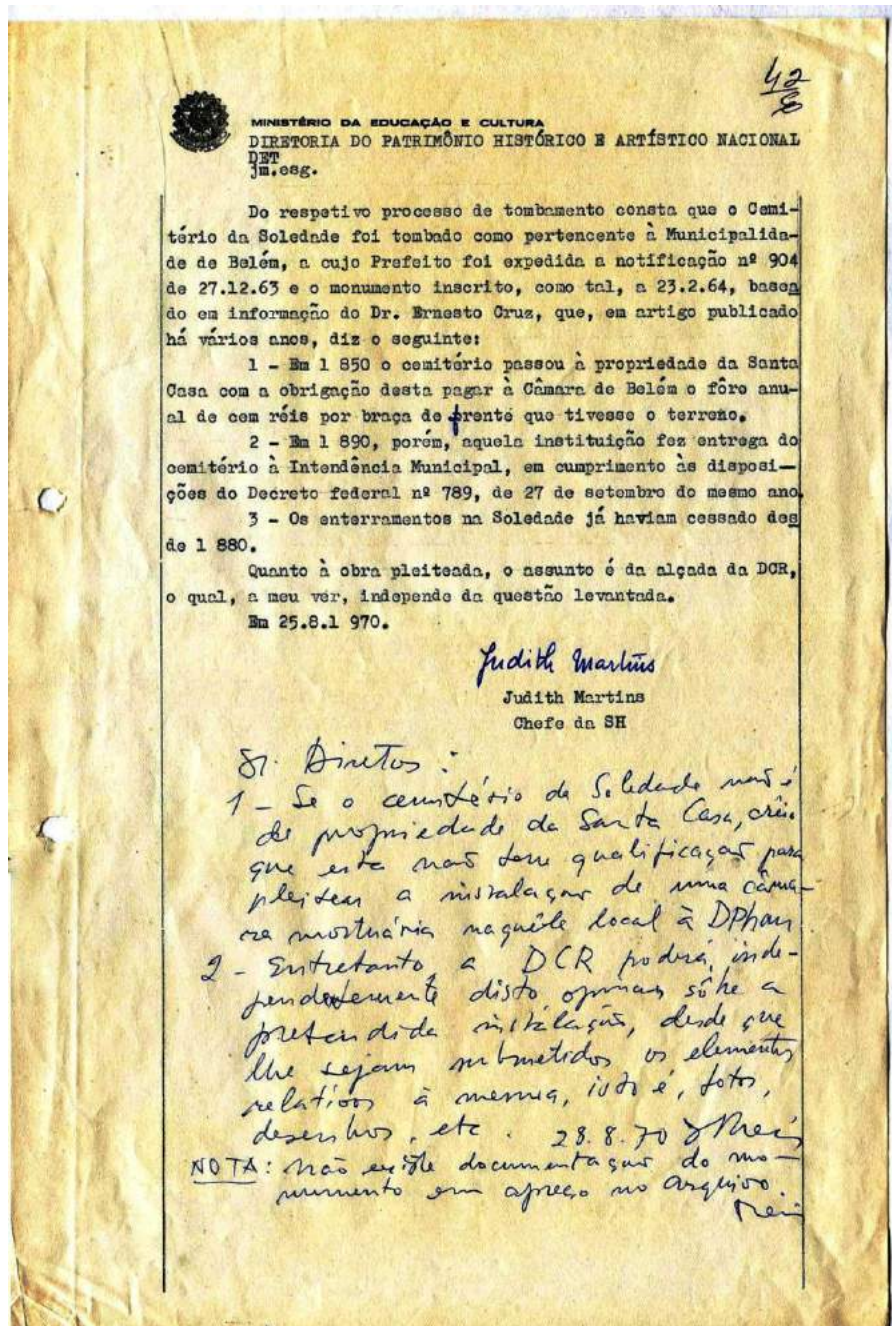 42
MINISTÉRIO DA EDUCAÇÃO E CULTURA
DIRETORIA DO PATRIMÔNIO HISTÓRICO E ARTÍSTICO NACIONAL
DET
jm.esg.
Do respetivo processo de tombamento consta que o Cemi-
tério da Soledade foi tombado como pertencente à Municipalida-
de de Belém, a cujo Prefeito foi expedida a notificação nº 904
de 27.12.63 e o monumento inscrito, como tal, a 23.2.64, basea
do em informação do Dr. Ernesto Cruz, que, em artigo publicado
há vários anos, diz o seguinte:
1 - Em 1 850 o cemitério passou à propriedade da Santa
Casa com a obrigação desta pagar à Câmara de Belém o fôro anu-
al de cem réis por braça de frente que tivesse o terreno.
2 - Em 1 890, porém, aquela instituição fez entrega do
cemitério à Intendência Municipal, em cumprimento às disposi-
ções do Decreto federal nº 789, de 27 de setembro do mesmo ano.
3 - Os enterramentos na Soledade já haviam cessado des
de 1 880.
Quanto à obra pleiteada, o assunto é da alçada da DCR,
o qual, a meu ver, independe da questão levantada.
Em 25.8.1 970.
Judith Martins
Judith Martins
Chefe da SH
Sr. Diretor:
1 - Se o cemitério da Soledade não é
de propriedade da Santa Casa, creio
que esta não tem qualificação para
pleitear a instalação de uma câma-
ra mortuária naquêle local à DPhan
2 - Entretanto, a DCR poderá, inde-
pendentemente disto opinar sôbre a
pretendida instalação, desde que
lhe sejam submetidos os elementos
relativos à mesma, isto é, fotos,
desenhos, etc. 28.8.70
NOTA: Não existe documentação do mo-
numento em apreço no Arquivo.